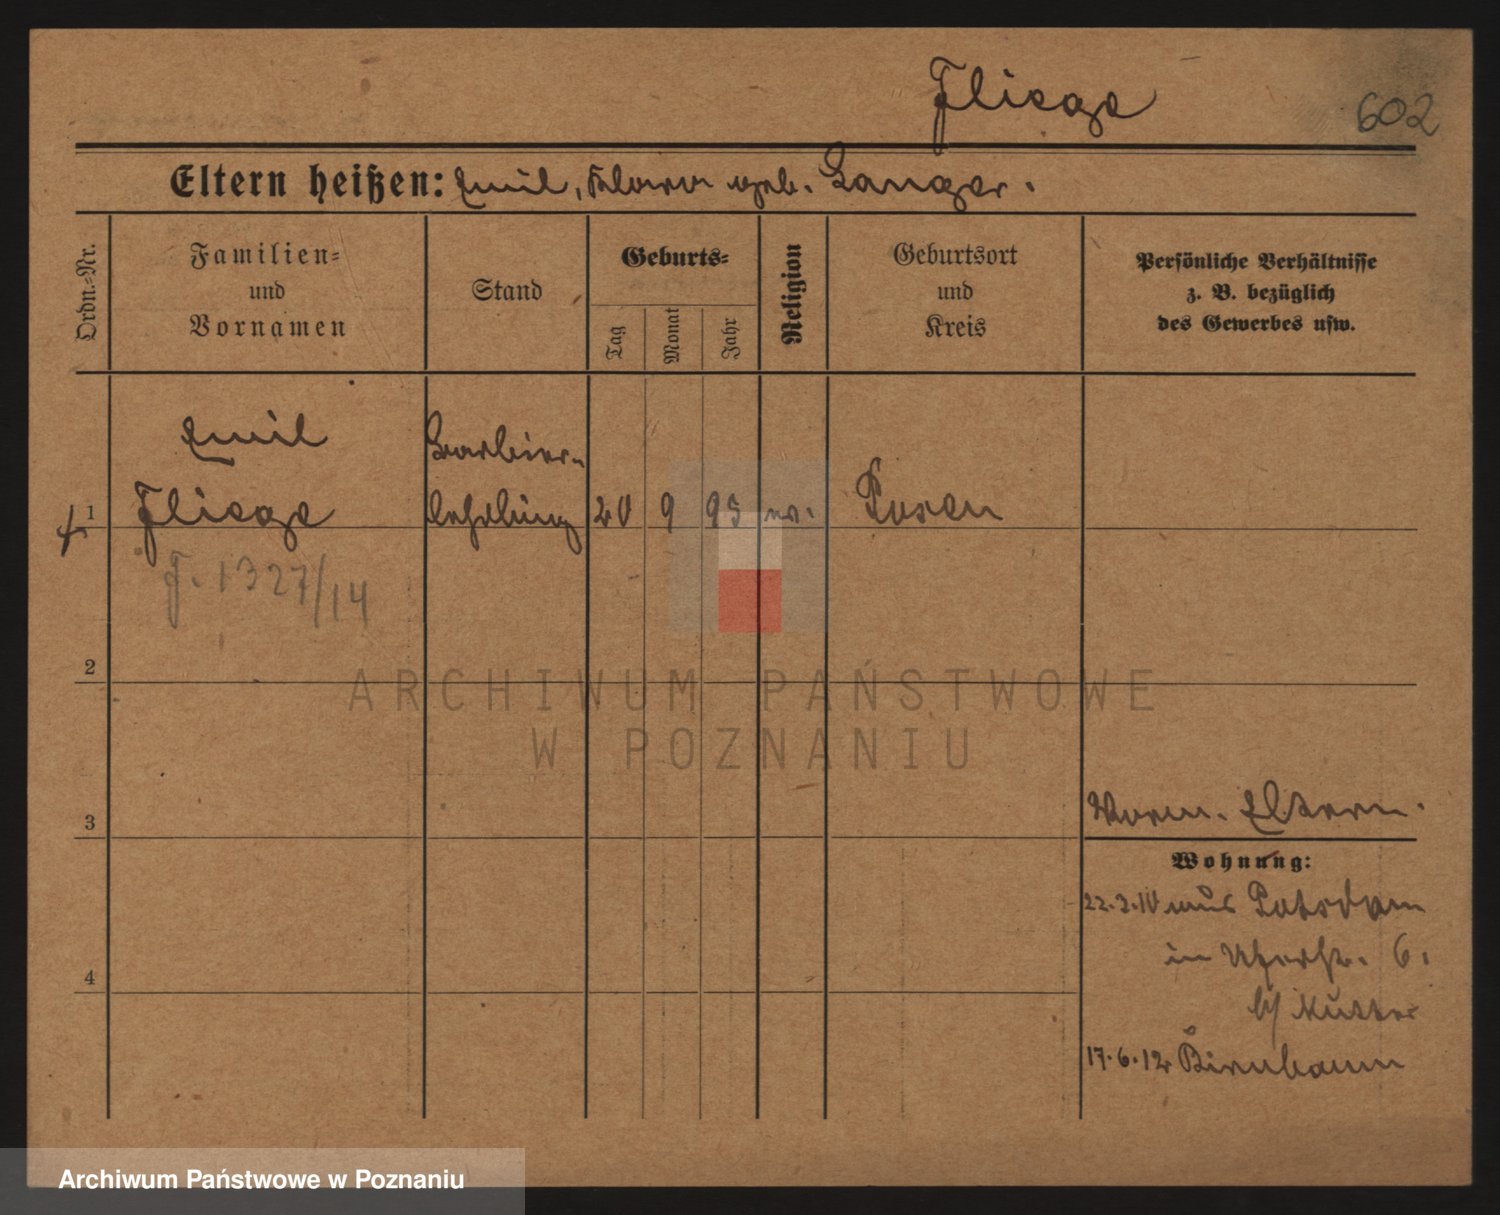 Fliege
602
Eltern heißen: Emil, Klara geb. Langer.
Ordn.-Nr.
Familien-
und
Vornamen
Stand
Geburts-
Tag
Monat
Jahr
Religion
Geburtsort
und
Kreis
Persönliche Verhältnisse
z. B. bezüglich
des Gewerbes usw.
Emil
Barbier-
1 Fliege lehrling 20 9 95 ev. Posen
F. 1327/14
2
ARCHIWUM PAŃSTWOWE
W POZNANIU
3
Vorm. Eltern.
Wohnung:
22.3.10 aus Potsdam
in Uferstr. 6.
b/ Mutter
4
17.6.12 Birnbaum
Archiwum Państwowe w Poznaniu